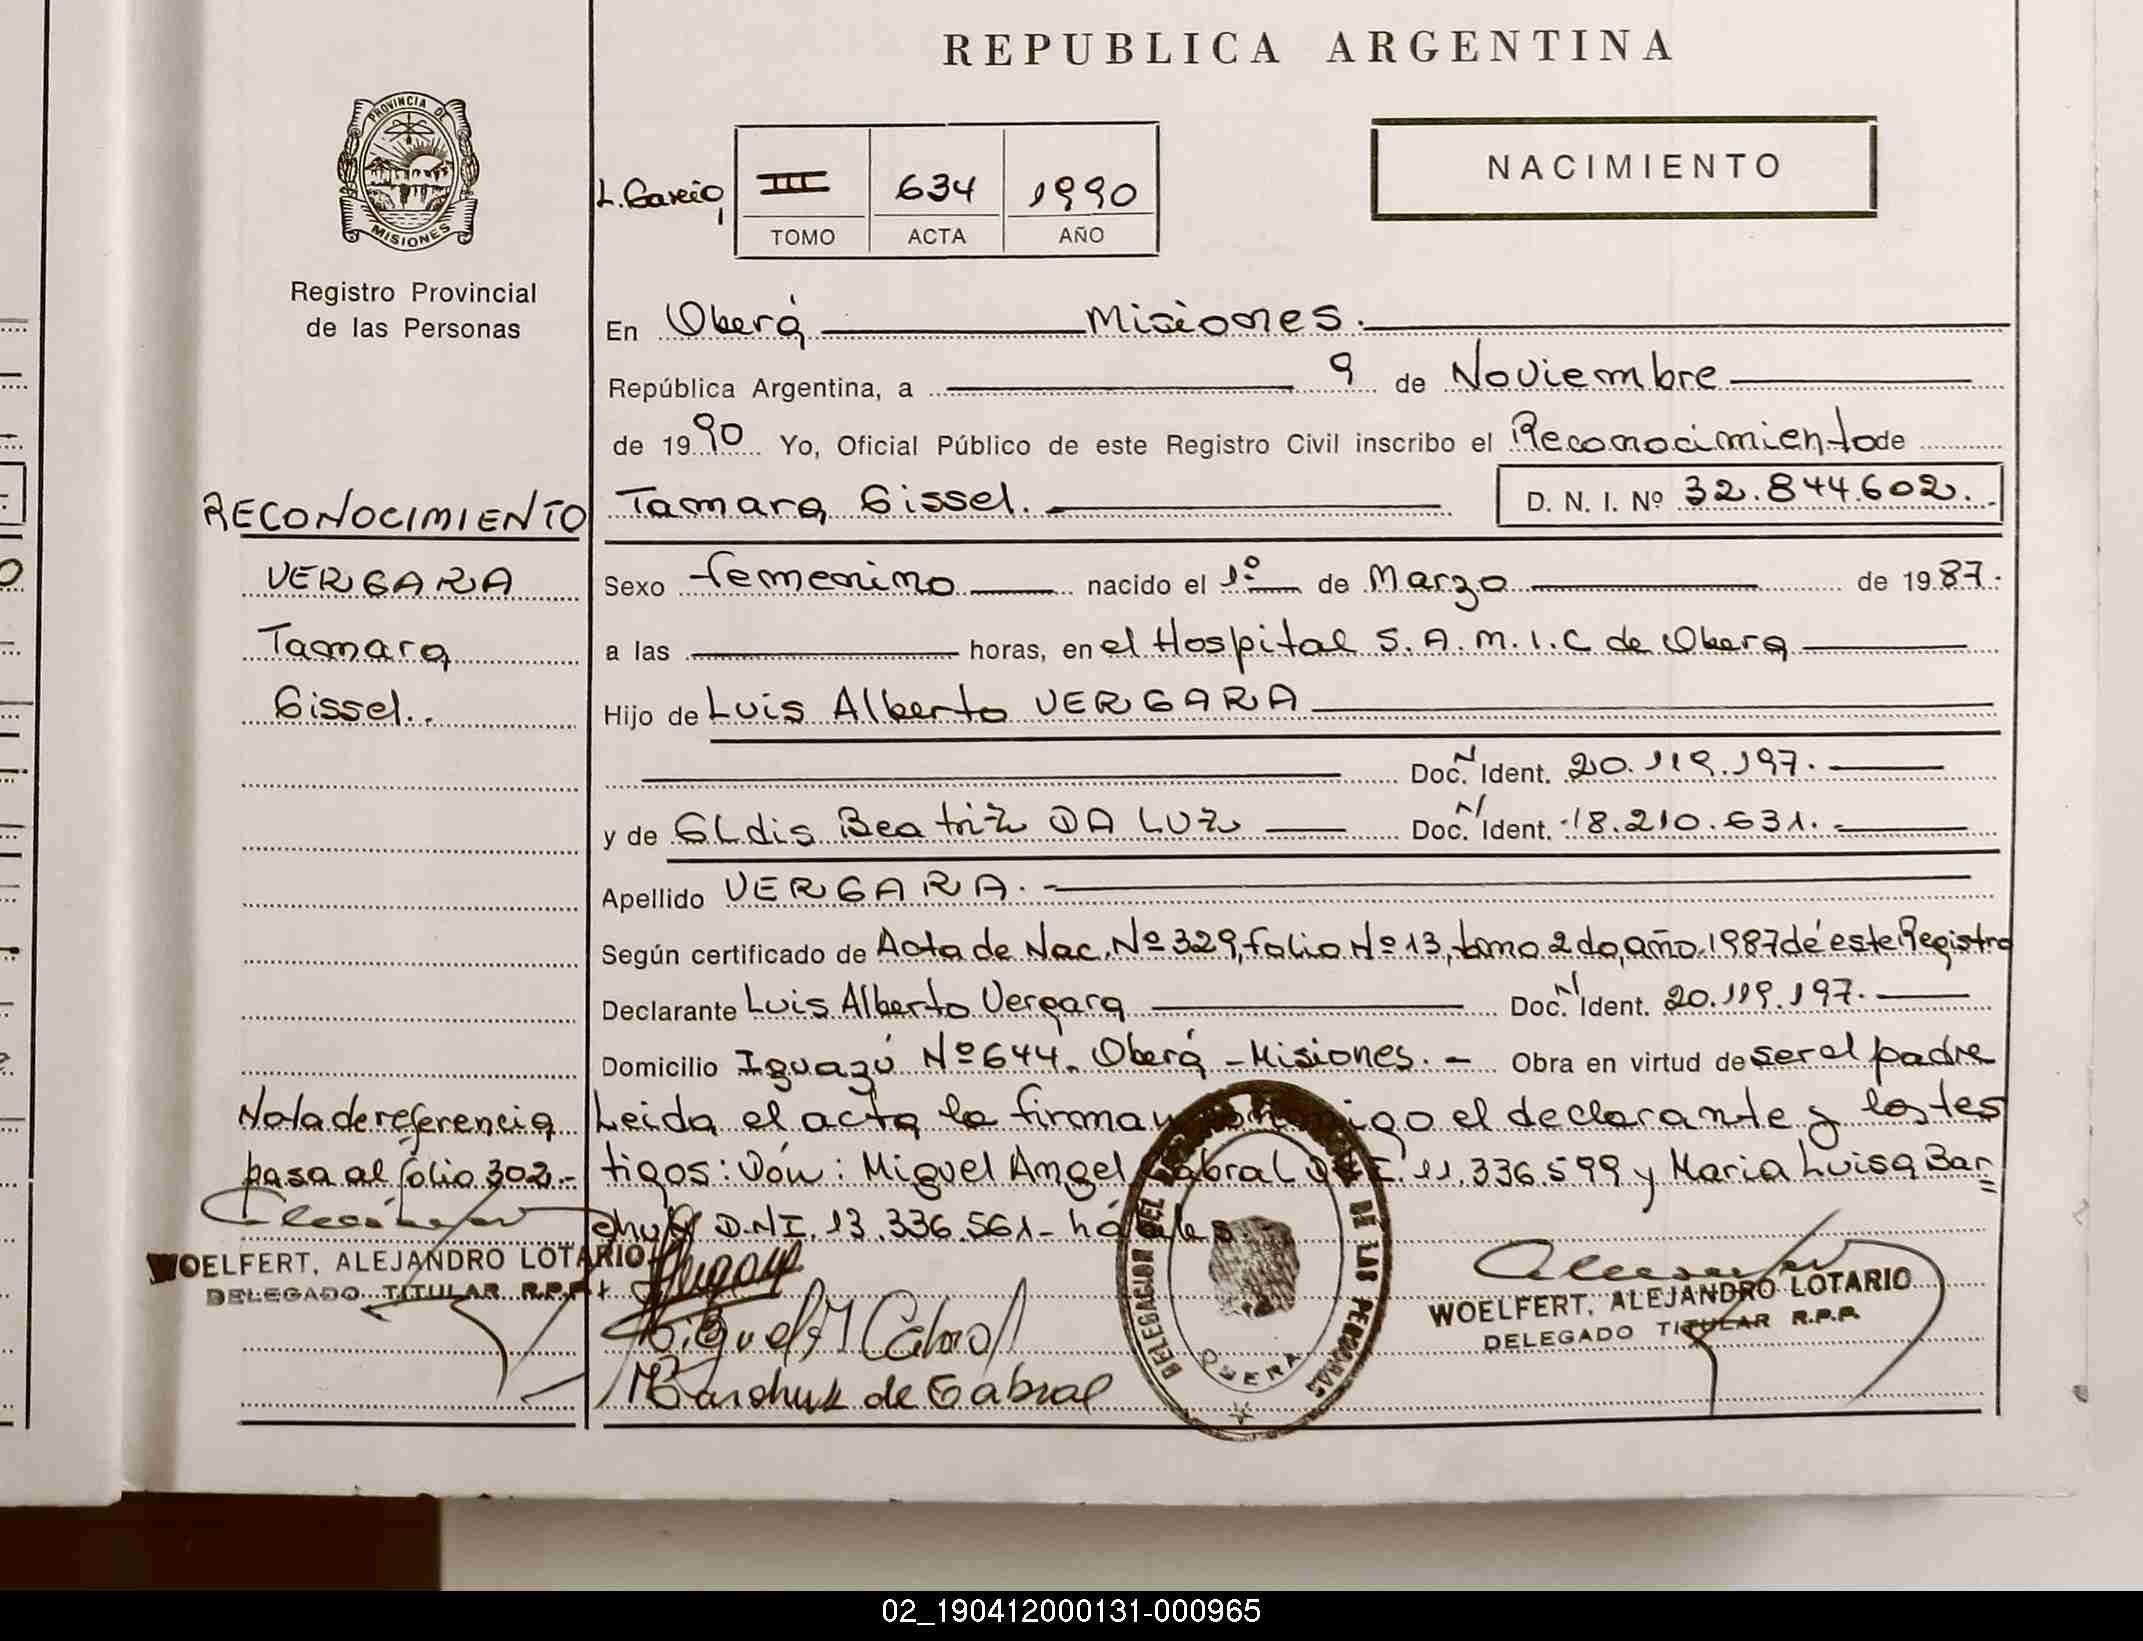 REPUBLICA ARGENTINA
PROVINCIA DE
MISIONES
Registro Provincial
de las Personas
L. Garcia
III 634 1990
TOMO ACTA AÑO
NACIMIENTO
En Oberá Misiones.
República Argentina, a 9 de Noviembre
de 1990 Yo, Oficial Público de este Registro Civil inscribo el Reconocimiento de
Tamara Gissel. D. N. I. Nº 32.844.602.-
RECONOCIMIENTO
VERGARA
Tamara
Gissel..
Sexo femenino nacido el 1º de Marzo de 1987.
a las horas, en el Hospital S.A.M.I.C de Obera
Hijo de Luis Alberto VERGARA
Doc. N Ident. 20.119.197.
y de GLdis Beatriz DA LUZ Doc. N Ident. 18.210.631.-
Apellido VERGARA.
Según certificado de Acta de Nac. Nº 329, folio Nº 13, tomo 2do, año 1987 de este Registro
Declarante Luis Alberto Vergara Doc. N Ident. 20.119.197.
Domicilio Iguazú Nº 644. Oberá - Misiones. - Obra en virtud de ser el padre
Leida el acta la firman conmigo el declarante y los tes
tigos: Dón: Miguel Angel Cabral D.N.I. 11.336.599 y Maria Luisa Bar=
chuk D.N.I. 13.336.561- hábiles
Nota de referencia
pasa al folio 302.-
WOELFERT, ALEJANDRO LOTARIO
DELEGADO TITULAR R.P.P.
Miguel A Cabral
M Barchuk de Cabral
DELEGACION DEL DE LAS PERSONAS
OBERA
WOELFERT, ALEJANDRO LOTARIO
DELEGADO TITULAR R.P.P.
02_190412000131-000965